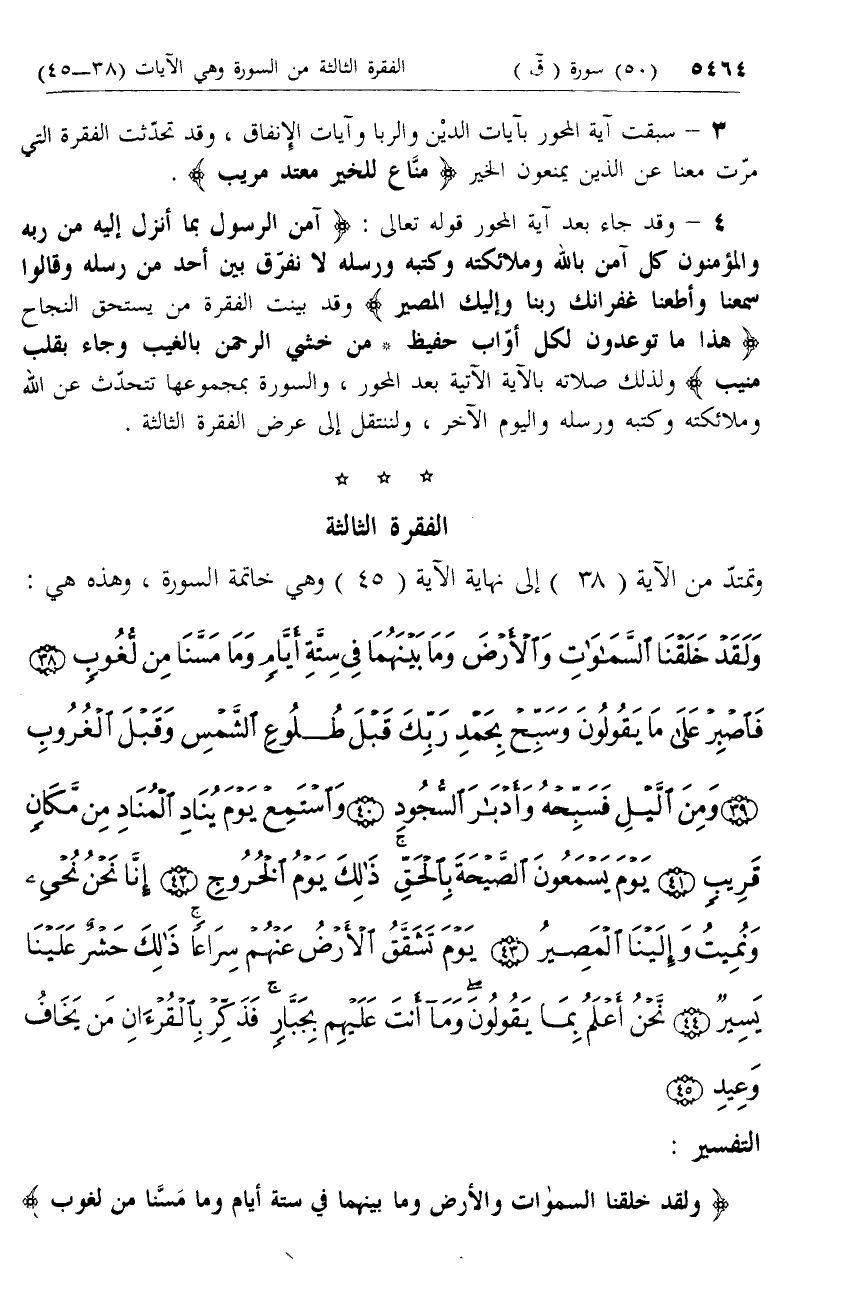 ٥٤٦٤ (٥٠) سورة ( قٓ ) الفقرة الثالثة من السورة وهي الآيات (٣٨ــ٤٥)
٣ – سبقت آية المحور بآيات الديْن والربا وآيات الإنفاق ، وقد تحدّثت الفقرة التي
مرّت معنا عن الذين يمنعون الخير ﴿ منَّاع للخير معتد مريب ﴾ .
٤ – وقد جاء بعد آية المحور قوله تعالى : ﴿ آمن الرسول بما أنزل إليه من ربه
والمؤمنون كل آمن بالله وملائكته وكتبه ورسله لا نفرّق بين أحد من رسله وقالوا
سمعنا وأطعنا غفرانك ربنا وإليك المصير ﴾ وقد بينت الفقرة من يستحق النجاح
﴿ هذا ما توعدون لكل أوّاب حفيظ * من خشي الرحمن بالغيب وجاء بقلب
منيب ﴾ ولذلك صلاته بالآية الآتية بعد المحور ، والسورة بمجموعها تتحدّث عن الله
وملائكته وكتبه ورسله واليوم الآخر ، ولننتقل إلى عرض الفقرة الثالثة .
☆ ☆ ☆
الفقرة الثالثة
وتمتدّ من الآية ( ٣٨ ) إلى نهاية الآية ( ٤٥ ) وهي خاتمة السورة ، وهذه هي :
وَلَقَدْ خَلَقْنَا ٱلسَّمَٰوَٰتِ وَٱلْأَرْضَ وَمَا بَيْنَهُمَا فِي سِتَّةِ أَيَّامٍ وَمَا مَسَّنَا مِن لُّغُوبٍ ٣٨
فَٱصْبِرْ عَلَىٰ مَا يَقُولُونَ وَسَبِّحْ بِحَمْدِ رَبِّكَ قَبْلَ طُلُوعِ ٱلشَّمْسِ وَقَبْلَ ٱلْغُرُوبِ
٣٩ وَمِنَ ٱلَّيْلِ فَسَبِّحْهُ وَأَدْبَٰرَ ٱلسُّجُودِ ٤٠ وَٱسْتَمِعْ يَوْمَ يُنَادِ ٱلْمُنَادِ مِن مَّكَانٍ
قَرِيبٍ ٤١ يَوْمَ يَسْمَعُونَ ٱلصَّيْحَةَ بِٱلْحَقِّ ۚ ذَٰلِكَ يَوْمُ ٱلْخُرُوجِ ٤٢ إِنَّا نَحْنُ نُحْيِۦ
وَنُمِيتُ وَإِلَيْنَا ٱلْمَصِيرُ ٤٣ يَوْمَ تَشَقَّقُ ٱلْأَرْضُ عَنْهُمْ سِرَاعًا ۚ ذَٰلِكَ حَشْرٌ عَلَيْنَا
يَسِيرٌ ٤٤ نَّحْنُ أَعْلَمُ بِمَا يَقُولُونَ ۖ وَمَآ أَنتَ عَلَيْهِم بِجَبَّارٍ ۚ فَذَكِّرْ بِٱلْقُرْءَانِ مَن يَخَافُ
وَعِيدِ ٤٥
التفسير :
﴿ ولقد خلقنا السمٰوات والأرض وما بينهما في ستة أيام وما مَسَّنا من لغوب ﴾